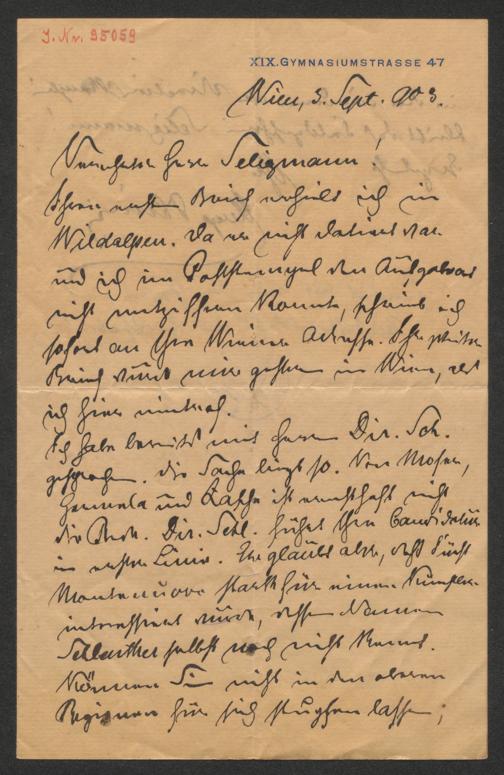 J. Nr. 95059
XIX. GYMNASIUMSTRASSE 47
Wien, 3. Sept. 903.
Verehrter Herr Seligmann!
Ihren ersten Brief erhielt ich in
Wildalpen. Da er nicht datiert war
und ich im Poststempel den Aufgabeort
nicht entziffern konnte, schrieb ich
sofort an Ihre Wiener Adresse. Ihr zweiter
Brief wurde mir gestern in Wien, als
ich hier eintraf.
Ich habe bereits mit Herrn Dir. Sch.
gesprochen. Die Sache liegt so. Von Moser,
und ist ernsthaft nicht
die Rede. Dir. Schl. führt Ihre Candidatur
in erster Linie. Er glaubt aber, daß Fürst
Montenuovo stark für einen
interessiert wurde, dessen Namen
selbst noch nicht kennt.
Können Sie nicht in den oberen
Regionen für sich lassen;